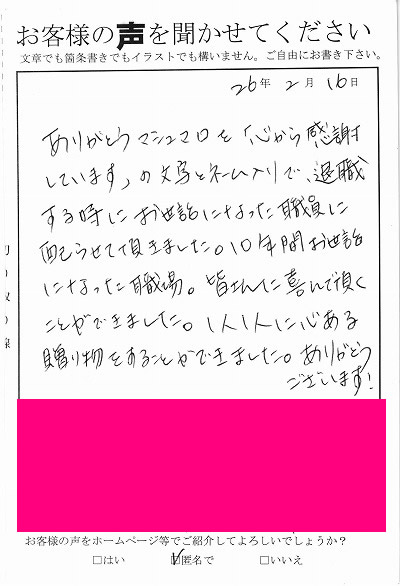 お客様の声を聞かせてください
文章でも箇条書きでもイラストでも構いません。ご自由にお書き下さい。
26年 2月 16日
ありがとうマシュマロを「心から感謝
しています」の文字とネーム入りで、退職
する時にお世話になった職員に
配らせて頂きました。10年間お世話
になった職場。皆さんに喜んで頂く
ことができました。1人1人に心ある
贈り物をすることができました。ありがとう
ございます!
お客様の声をホームページ等でご紹介してよろしいでしょうか?
□はい ☑匿名で □いいえ